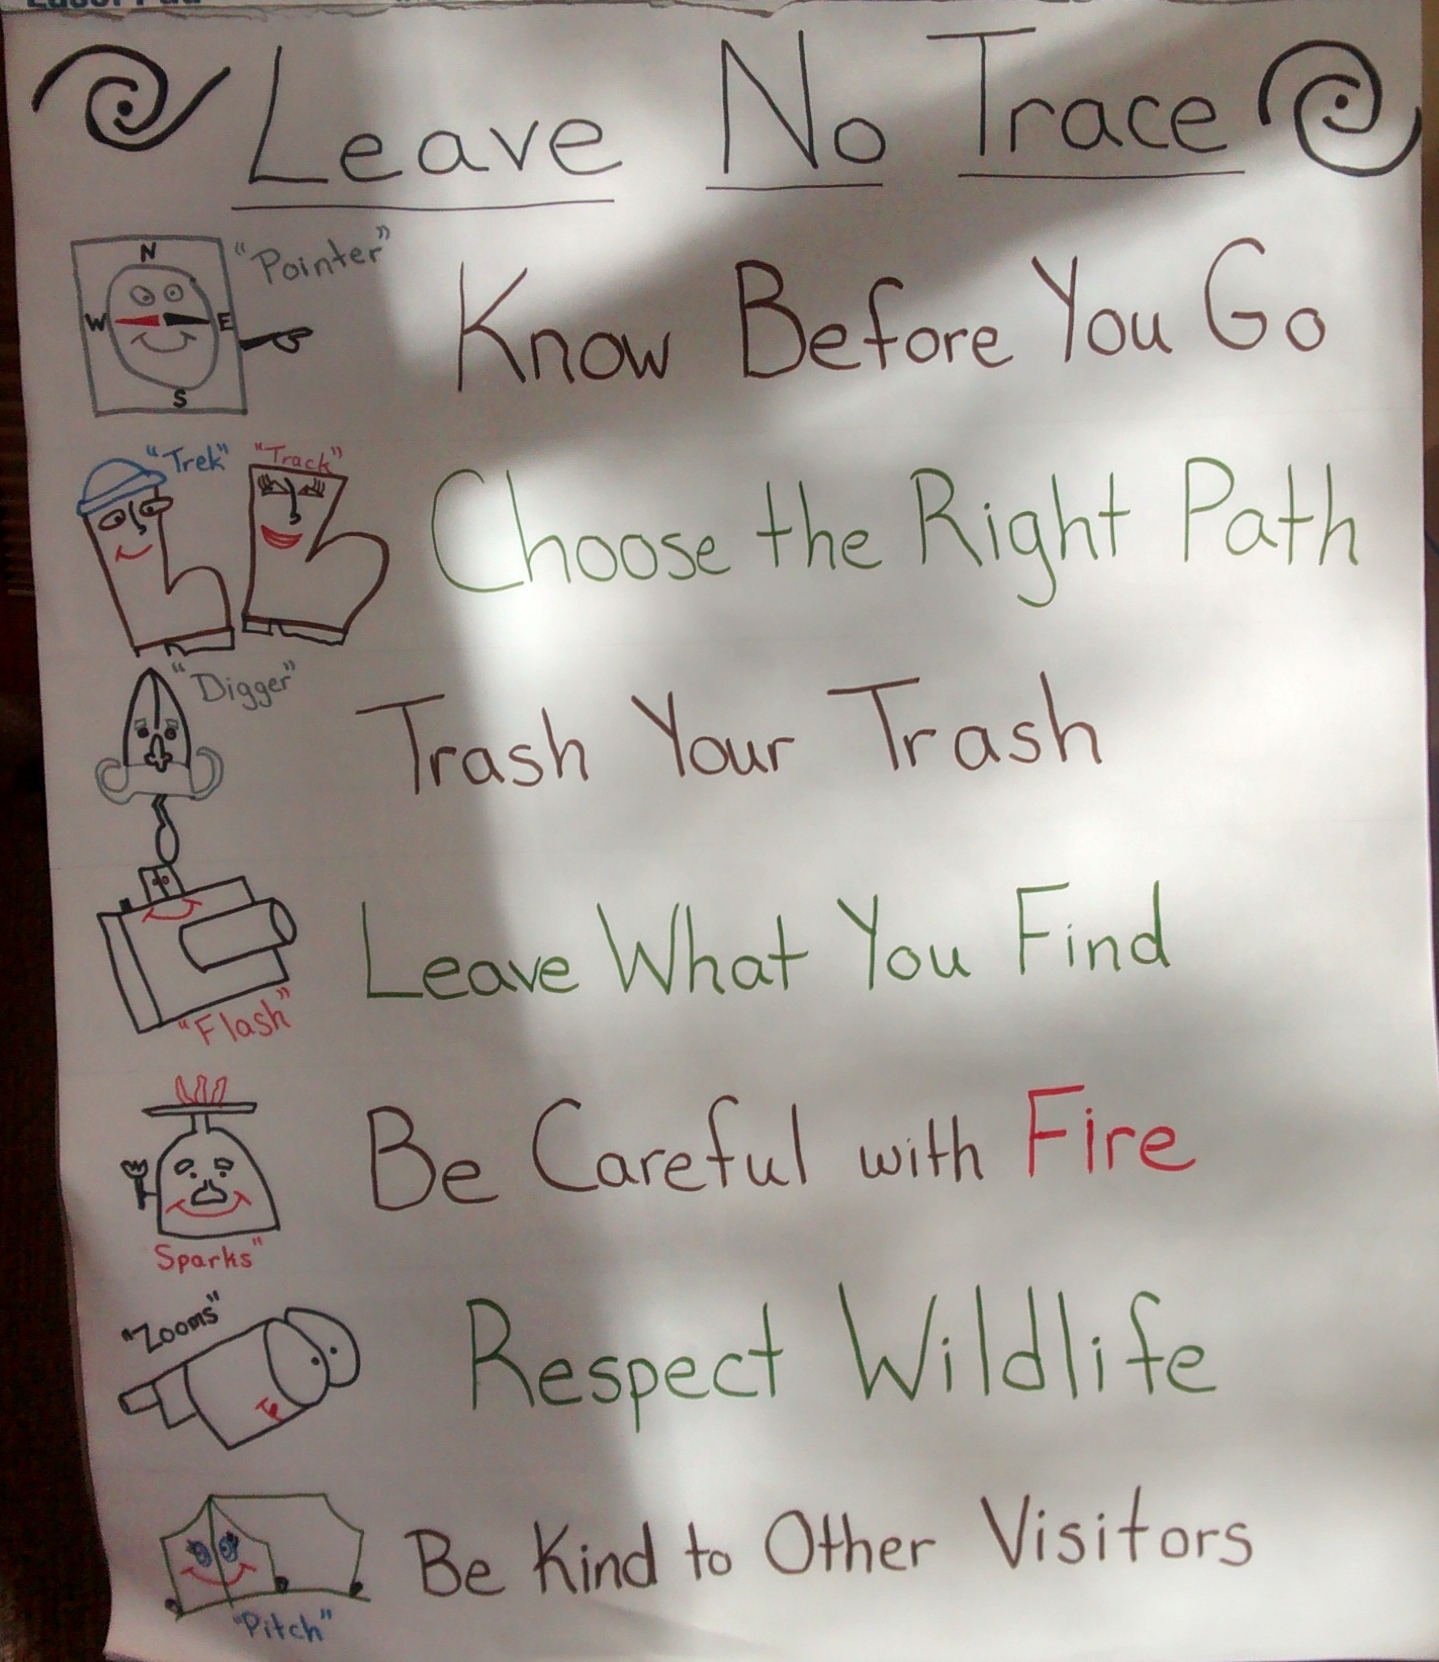 Leave No Trace
"Pointer"
N
W E
S
Know Before You Go
"Trek" "Track"
Choose the Right Path
"Digger"
Trash Your Trash
Leave What You Find
"Flash"
Be Careful with Fire
Sparks"
"Zooms"
Respect Wildlife
Be Kind to Other Visitors
"Pitch"